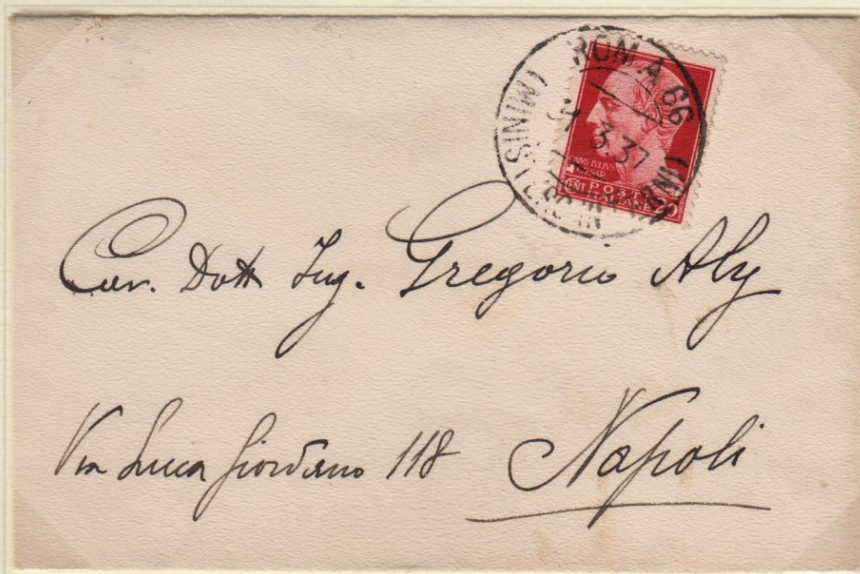 ROMA 66
3.37
POSTE
ITALIANE
CENT 20
Cav. Dott Ing. Gregorio Aly
Via Luca Giordano 118 Napoli